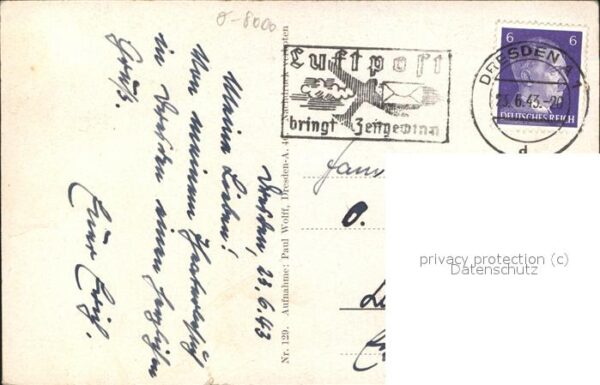 σ-8000
Dresden, 23.6.43
Meine Lieben!
Von meinem
in Dresden einen herzlichen
Gruß.
Euer Erich.
Nr. 129. Aufnahme: Paul Wolff, Dresden-A. verboten
Luftpost
bringt Zeitgewinn
DRESDEN A 1
23.6.43.-20
d
6 6
DEUTSCHES REICH
Fam
O.
privacy protection (c)
Datenschutz